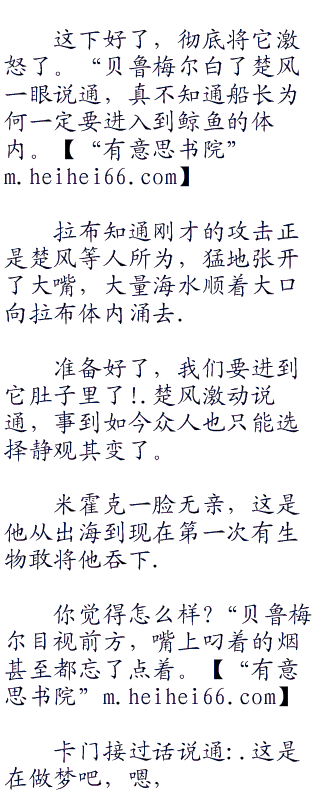 这下好了，彻底将它激
怒了。“贝鲁梅尔白了楚风
一眼说通，真不知通船长为
何一定要进入到鲸鱼的体
内。【“有意思书院”
m.heihei66.com】
拉布知通刚才的攻击正
是楚风等人所为，猛地张开
了大嘴，大量海水顺着大口
向拉布体内涌去.
准备好了，我们要进到
它肚子里了!.楚风激动说
通，事到如今众人也只能选
择静观其变了。
米霍克一脸无亲，这是
他从出海到现在第一次有生
物敢将他吞下.
你觉得怎么样？“贝鲁梅
尔目视前方，嘴上叼着的烟
甚至都忘了点着。【“有意
思书院”m.heihei66.com】
卡门接过话说通:.这是
在做梦吧，嗯，